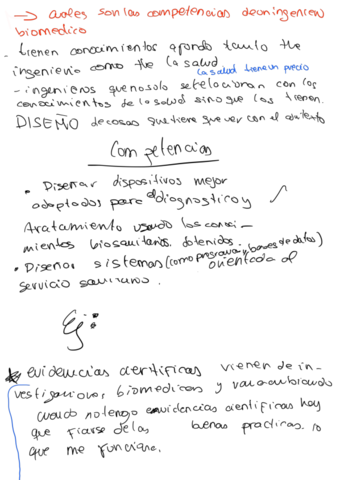 → cuales son las competencias de un ingeniero
biomedico
- tienen conocimientos a fondo tanto the
ingenieria como the la salud
la salud tiene un precio
- ingenieros que no solo se relacionan con los
conocimientos de la salud sino que los tienen.
DISEÑO de cosas que tiene que ver con el
Competencias
• Diseñar dispositivos mejor
adaptados para el diagnostico y
tratamiento usando los conoci-
mientos biosanitarios obtenidos.
• Diseñar sistemas (como programas y bases de datos)
orientada al
servicio sanitario.
Ej:
* evidencias cientificas vienen de in-
vestigaciones biomedicas y van cambiando
cuando no tengo evidencias cientificas hay
que fiarse de las buenas practicas. lo
que me funciona.